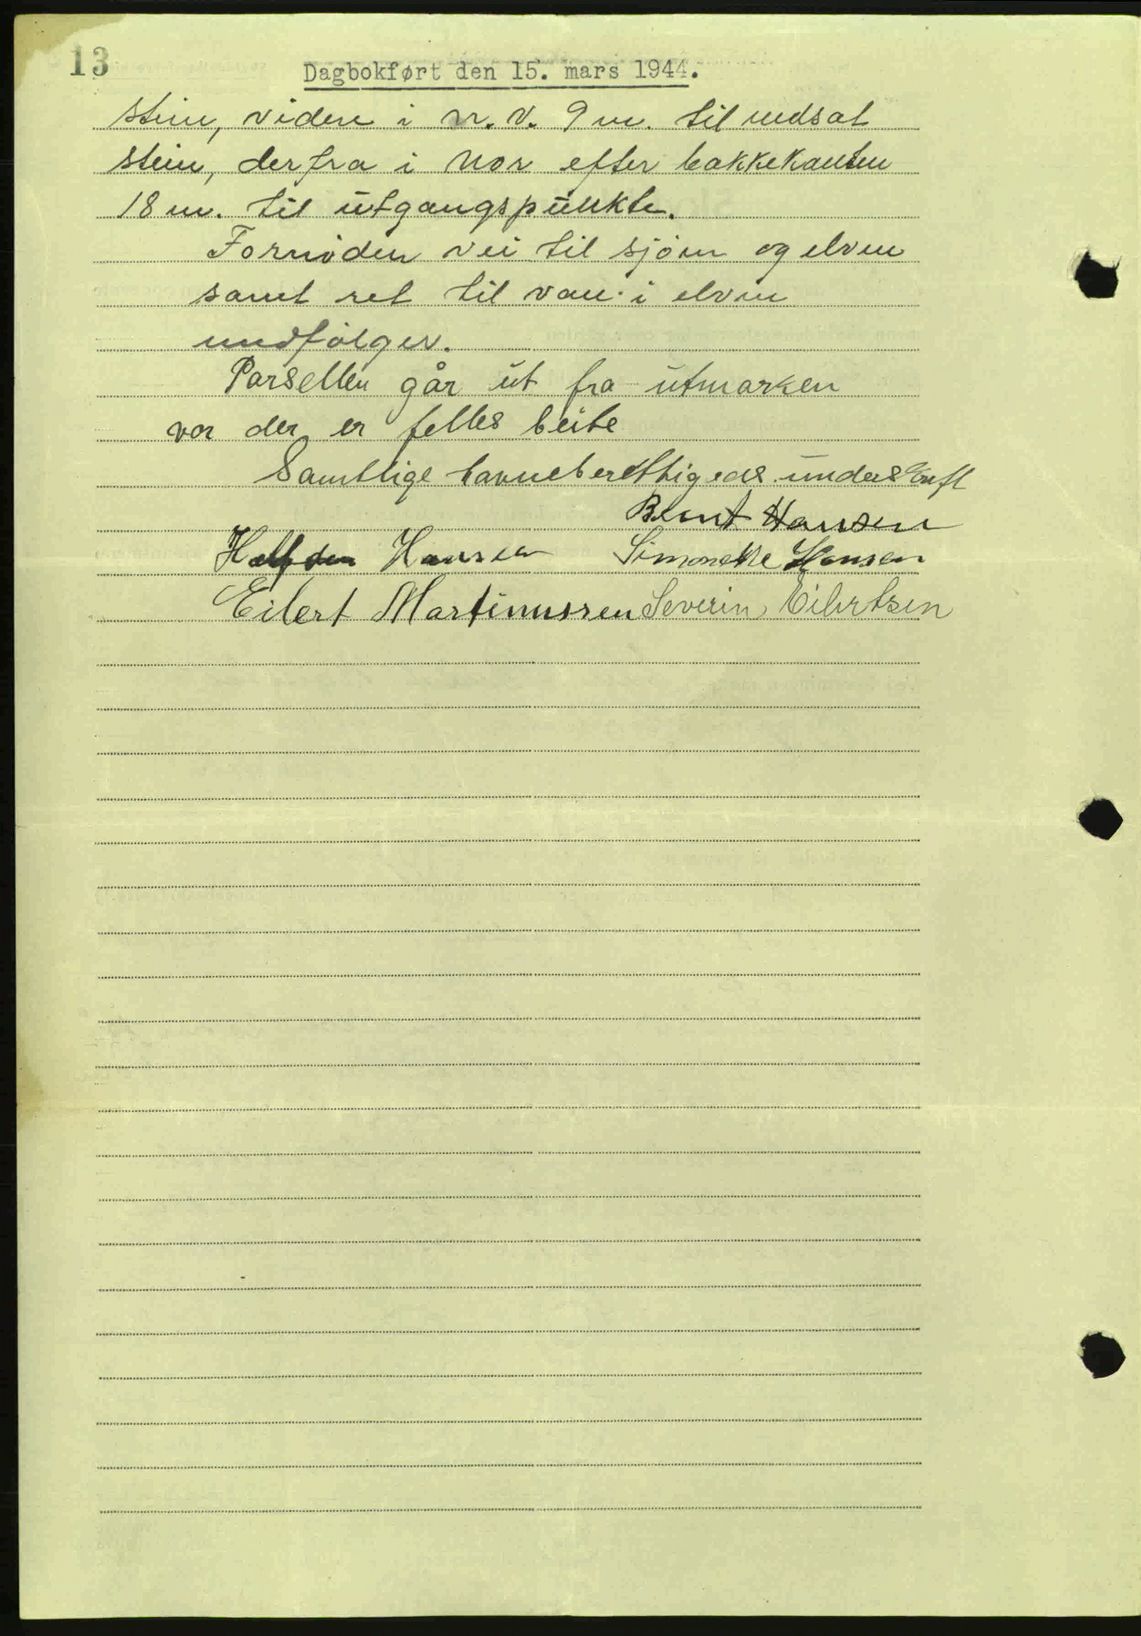 13
Dagbokført den 15. mars 1944.
stein, videre i n. v. 9 m. til nedsat
stein, derfra i Nor efter bakkekanten
18 m. til utgangspunkte.
Fornøden vei til sjøen og elven
samt ret til van i elven
medfølger.
Parsellen går ut fra utmarken
vor der er felles beite
Samtlige havneberettigedes underskrift
Bernt Hansen
Halfdan Hansen Simonette Hansen
Eilert Martinussen Severin Eilertsen